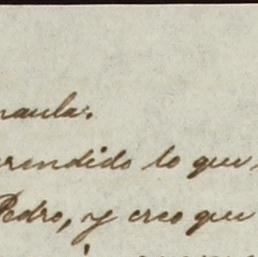 naula.
rendido lo que
Pedro, y creo que